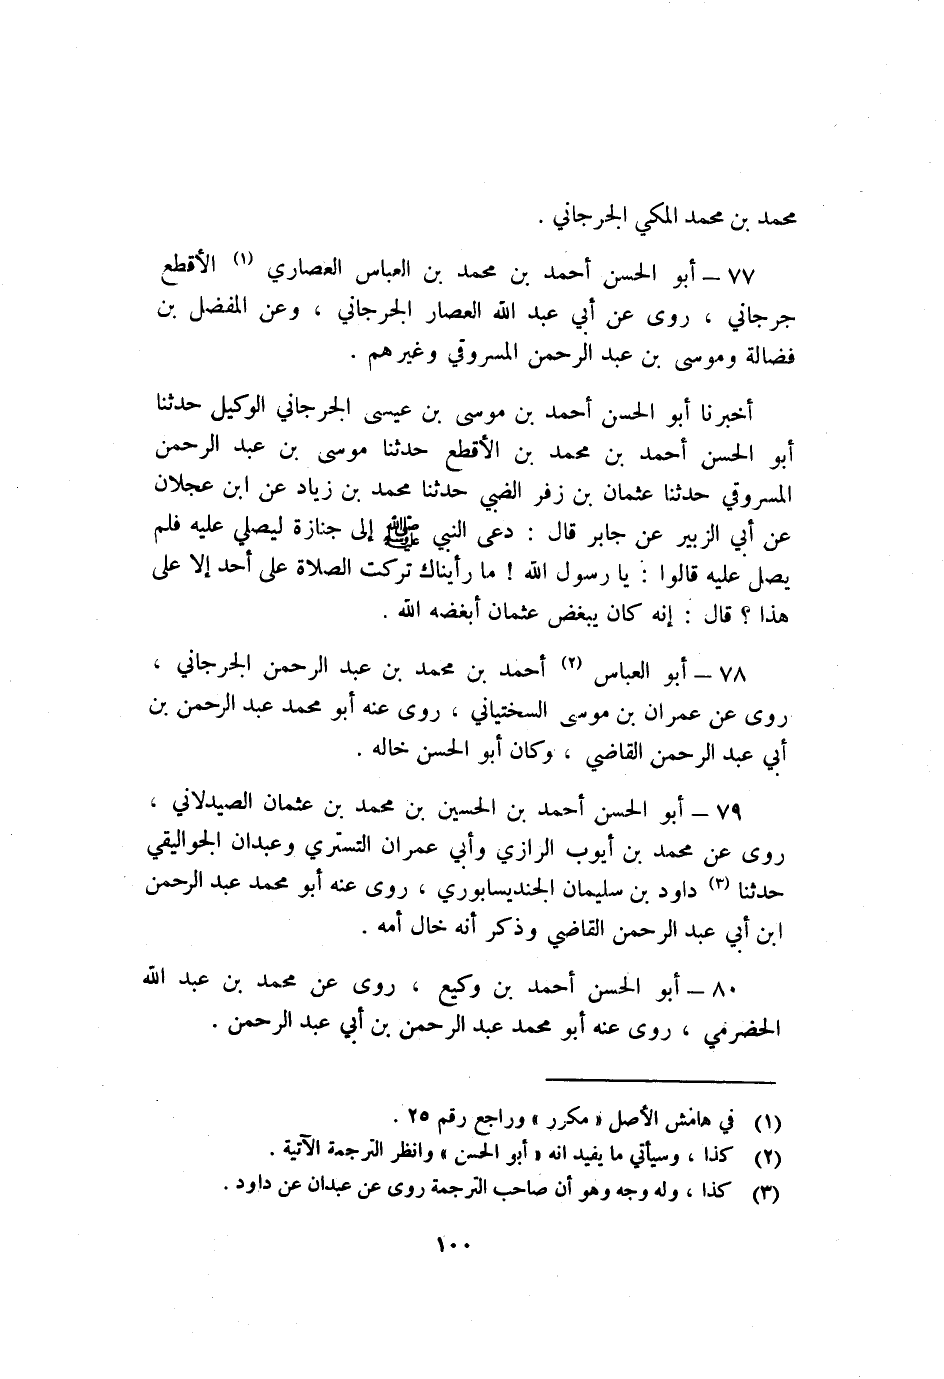 محمد بن محمد المكي الجرجاني .
٧٧ – أبو الحسن أحمد بن محمد بن العباس العصاري (١) الأقطع
جرجاني ، روى عن أبي عبد الله العصار الجرجاني ، وعن المفضل بن
فضالة وموسى بن عبد الرحمن المسروقي وغيرهم .
أخبرنا أبو الحسن أحمد بن موسى بن عيسى الجرجاني الوكيل حدثنا
أبو الحسن أحمد بن محمد بن الأقطع حدثنا موسى بن عبد الرحمن
المسروقي حدثنا عثمان بن زفر الضبي حدثنا محمد بن زياد عن ابن عجلان
عن أبي الزبير عن جابر قال : دعى النبي ﷺ إلى جنازة ليصلي عليه فلم
يصل عليه قالوا : يا رسول الله ! ما رأيناك تركت الصلاة على أحد إلا على
هذا ؟ قال : إنه كان يبغض عثمان أبغضه الله .
٧٨ – أبو العباس (٢) أحمد بن محمد بن عبد الرحمن الجرجاني ،
روى عن عمران بن موسى السختياني ، روى عنه أبو محمد عبد الرحمن بن
أبي عبد الرحمن القاضي ، وكان أبو الحسن خاله .
٧٩ – أبو الحسن أحمد بن الحسين بن محمد بن عثمان الصيدلاني ،
روى عن محمد بن أيوب الرازي وأبي عمران التستري وعبدان الجواليقي
حدثنا (٣) داود بن سليمان الجنديسابوري ، روى عنه أبو محمد عبد الرحمن
ابن أبي عبد الرحمن القاضي وذكر أنه خال أمه .
٨٠ – أبو الحسن أحمد بن وكيع ، روى عن محمد بن عبد الله
الحضرمي ، روى عنه أبو محمد عبد الرحمن بن أبي عبد الرحمن .
(١) في هامش الأصل « مكرر » وراجع رقم ٢٥ .
(٢) كذا ، وسيأتي ما يفيد انه « أبو الحسن » وانظر الترجمة الآتية .
(٣) كذا ، وله وجه وهو أن صاحب الترجمة روى عن عبدان عن داود .
١٠٠